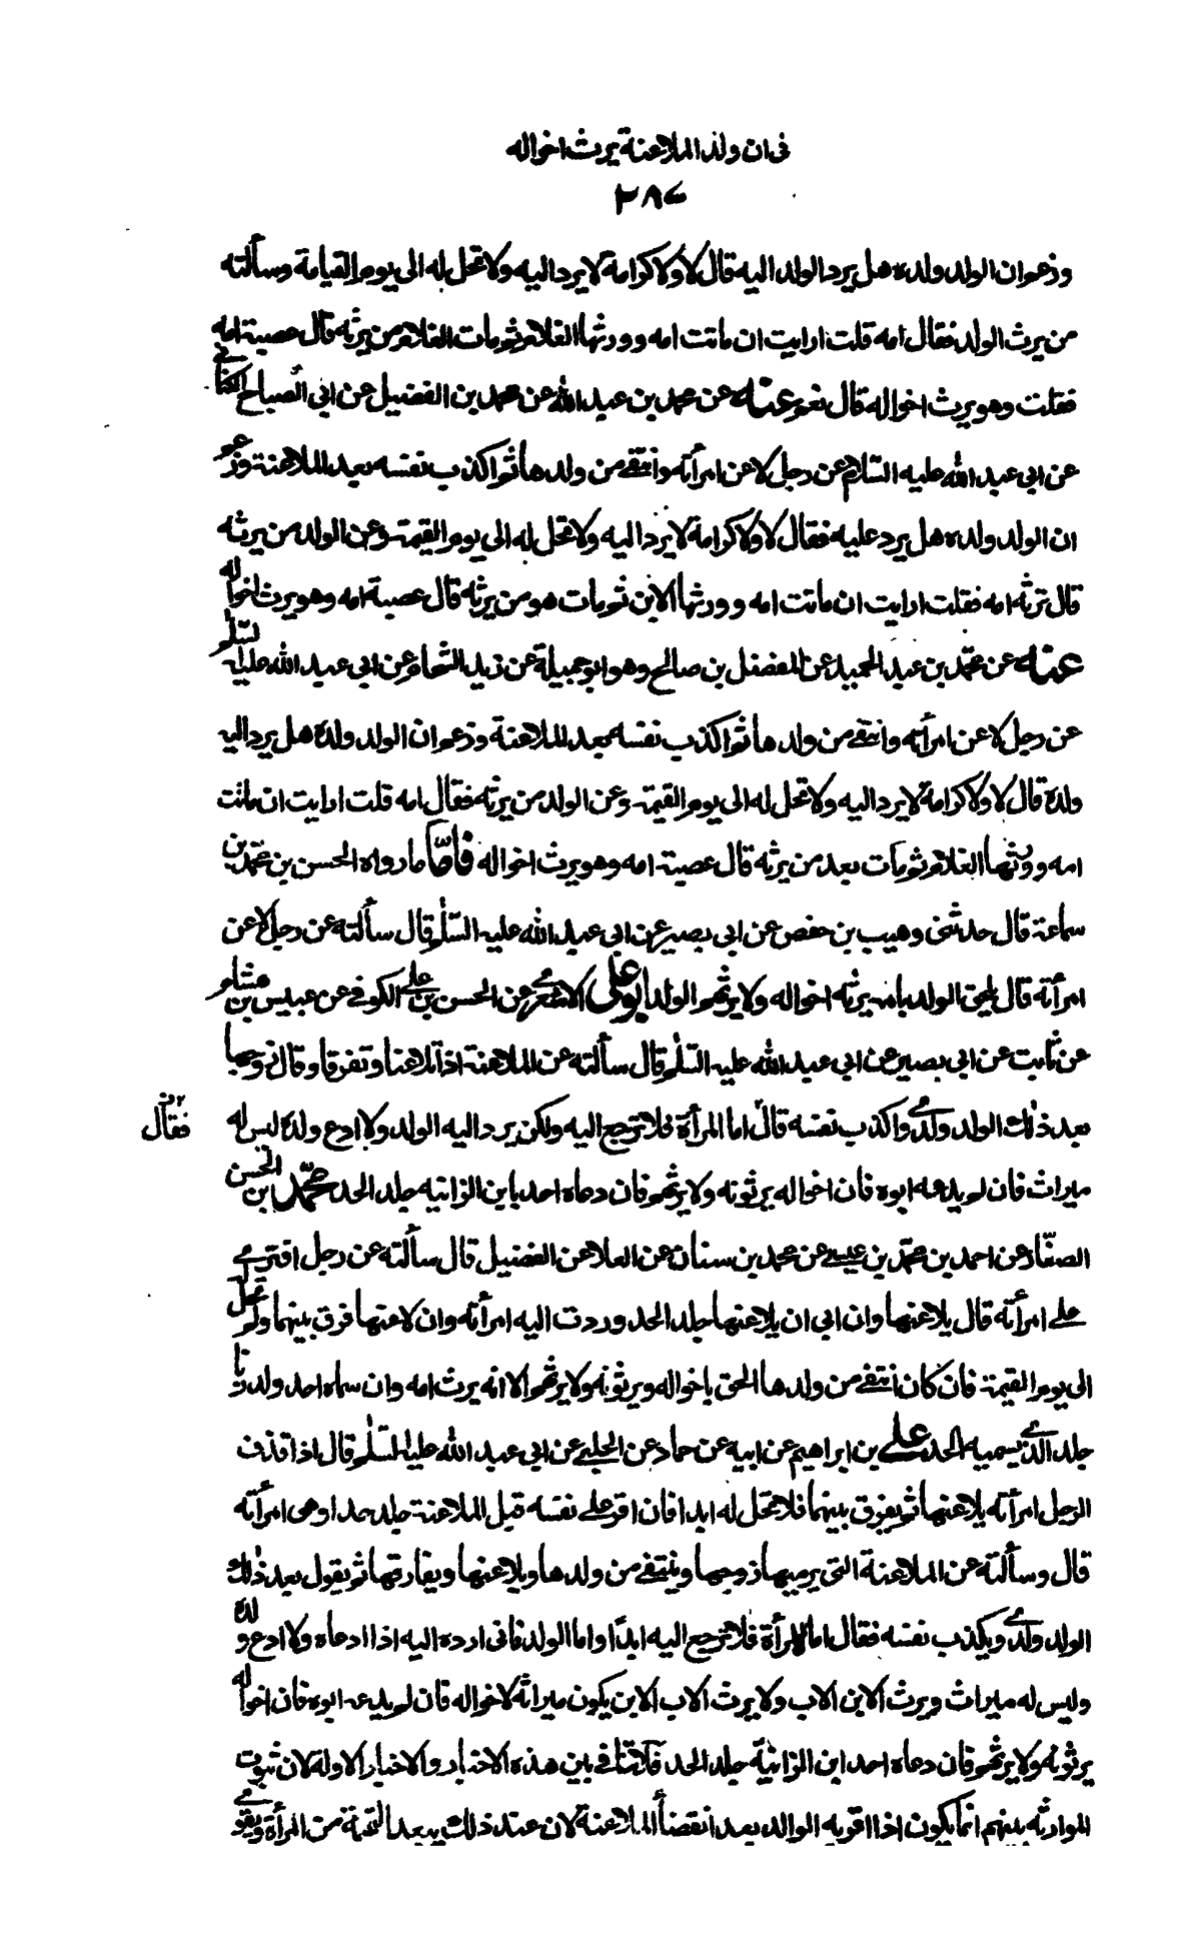 فى ان ولد الملاعنة يرث اخواله
٢٨٤
وزعم ان الولد ولده هل يرد الولد اليه قال لا ولا كرامة لا يرد اليه ولا تحل له الى يوم القيامة وسألته
من يرث الولد فقال امه قلت ارايت ان ماتت امه وورثها الغلام ثم مات الغلام من يرثه قال عصبة امه
فقلت وهو يرث اخواله قال نعم عنه عن محمد بن عبد الله عن محمد بن الفضيل عن ابي الصباح الكناني
عن ابي عبد الله عليه السلام عن رجل لاعن امرأته وانتفى من ولدها ثم اكذب نفسه بعد الملاعنة وزعم
ان الولد ولده هل يرد عليه فقال لا ولا كرامة لا يرد اليه ولا تحل له الى يوم القيمة وعن الولد من يرثه
قال ترثه امه فقلت ارايت ان ماتت امه وورثها الابن ثم مات هو من يرثه قال عصبة امه وهو يرث اخواله
عنه عن محمد بن عبد الحميد عن المفضل بن صالح وهو ابو جميلة عن زيد الشحام عن ابي عبد الله عليه السلم
عن رجل لاعن امرأته وانتفى من ولدها ثم اكذب نفسه بعد الملاعنة وزعم ان الولد ولده هل يرد اليه
ولده قال لا ولا كرامة لا يرد اليه ولا تحل له الى يوم القيمة وعن الولد من يرثه فقال امه قلت ارايت ان ماتت
امه وورثها الغلام ثم مات بعد من يرثه قال عصبة امه وهو يرث اخواله فأمّا ما رواه الحسن بن محمد بن
سماعة قال حدثنى وهيب بن حفص عن ابي بصير عن ابي عبد الله عليه السّلم قال سألته عن رجل لاعن
امرأته قال يلحق الولد بامه يرثه اخواله ولا يرثهم الولد ابو على الاشعرى عن الحسن بن على الكوفى عن عبيس بن هشام
عن ثابت عن ابي بصير عن ابي عبد الله عليه السّلم قال سألته عن الملاعنة اذا تلاعنا وتفرقا وقال زوجها
بعد ذلك الولد ولدى واكذب نفسه قال اما المرأة فلا ترجع اليه ولكن يرد اليه الولد ولا ادع ولده ليس له
فقال
ميراث فان لم يدعه ابوه فان اخواله يرثونه ولا يرثهم فان دعاه احد بابن الزانية جلد الحد محمّد بن الحسن
الصفّار عن احمد بن محمّد بن عيسى عن محمد بن سنان عن العلا عن الفضيل قال سألته عن رجل افترى
على امرأته قال يلاعنها وان ابى ان يلاعنها جلد الحد وردت اليه امرأته وان لاعنها فرق بينهما ولم تحل
الى يوم القيمة فان كان انتفى من ولدها الحق باخواله ويرثونه ولا يرثهم الا انه يرث امه وان سماه احد ولد زنا
جلد الذى يسميه الحد على بن ابراهيم عن ابيه عن حماد عن الحلبى عن ابي عبد الله عليه السّلم قال اذا قذف
الرجل امرأته يلاعنها ثم يفرق بينهما فلا تحل له ابدا فان اقر على نفسه قبل الملاعنة جلد حدا وهى امرأته
قال وسألته عن الملاعنة التى يرميها زوجها وينتفى من ولدها ويلاعنها ويفارقها ثم يقول بعد ذلك
الولد ولدى ويكذب نفسه فقال اما المرأة فلا ترجع اليه ابدًا واما الولد فانى ارده اليه اذا ادعاه ولا ادع ولده
وليس له ميراث ويرث الابن الاب ولا يرث الاب الابن يكون ميراثه لاخواله فان لم يدعه ابوه فان اخواله
يرثونه ولا يرثهم فان دعاه احد ابن الزانية جلد الحد فلا تنافى بين هذه الاخبار والاخبار الاولة لان ثبوت
الموارثة بينهم انما يكون اذا اقر به الوالد بعد انقضأ الملاعنة لان عند ذلك يبعد التهمة من المرأة ويقوى